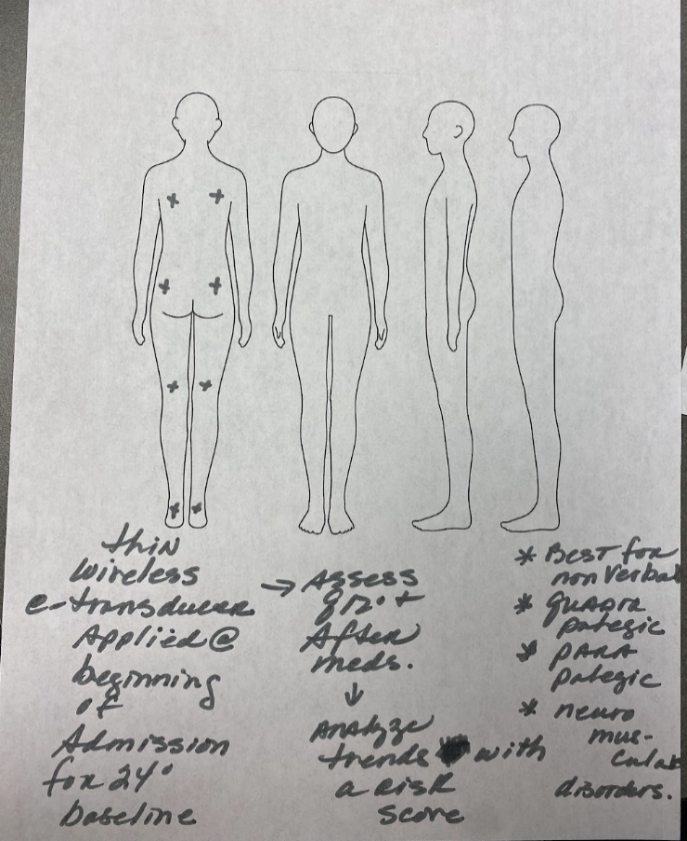 thin
wireless
e-transducer
Applied @
beginning
of
Admission
for 24°
baseline
→ Assess
q12° +
After
meds.
↓
Analyze
trends with
a Risk
score
* Best for
nonverbal
* quadra
palegic
* PARA
palegic
* neuro
mus-
cular
disorders.